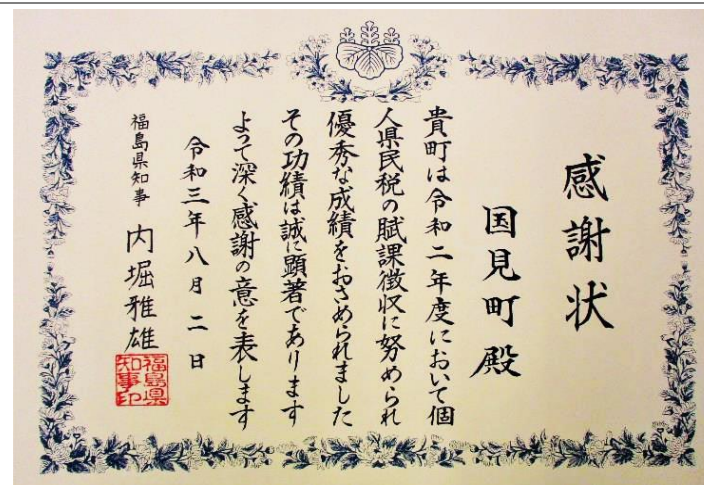 感謝状
国見町殿
貴町は令和二年度において個
人県民税の賦課徴収に努められ
優秀な成績をおさめられました
その功績は誠に顕著であります
よって深く感謝の意を表します
令和三年八月二日
福島県知事 内堀雅雄
福島県
知事印